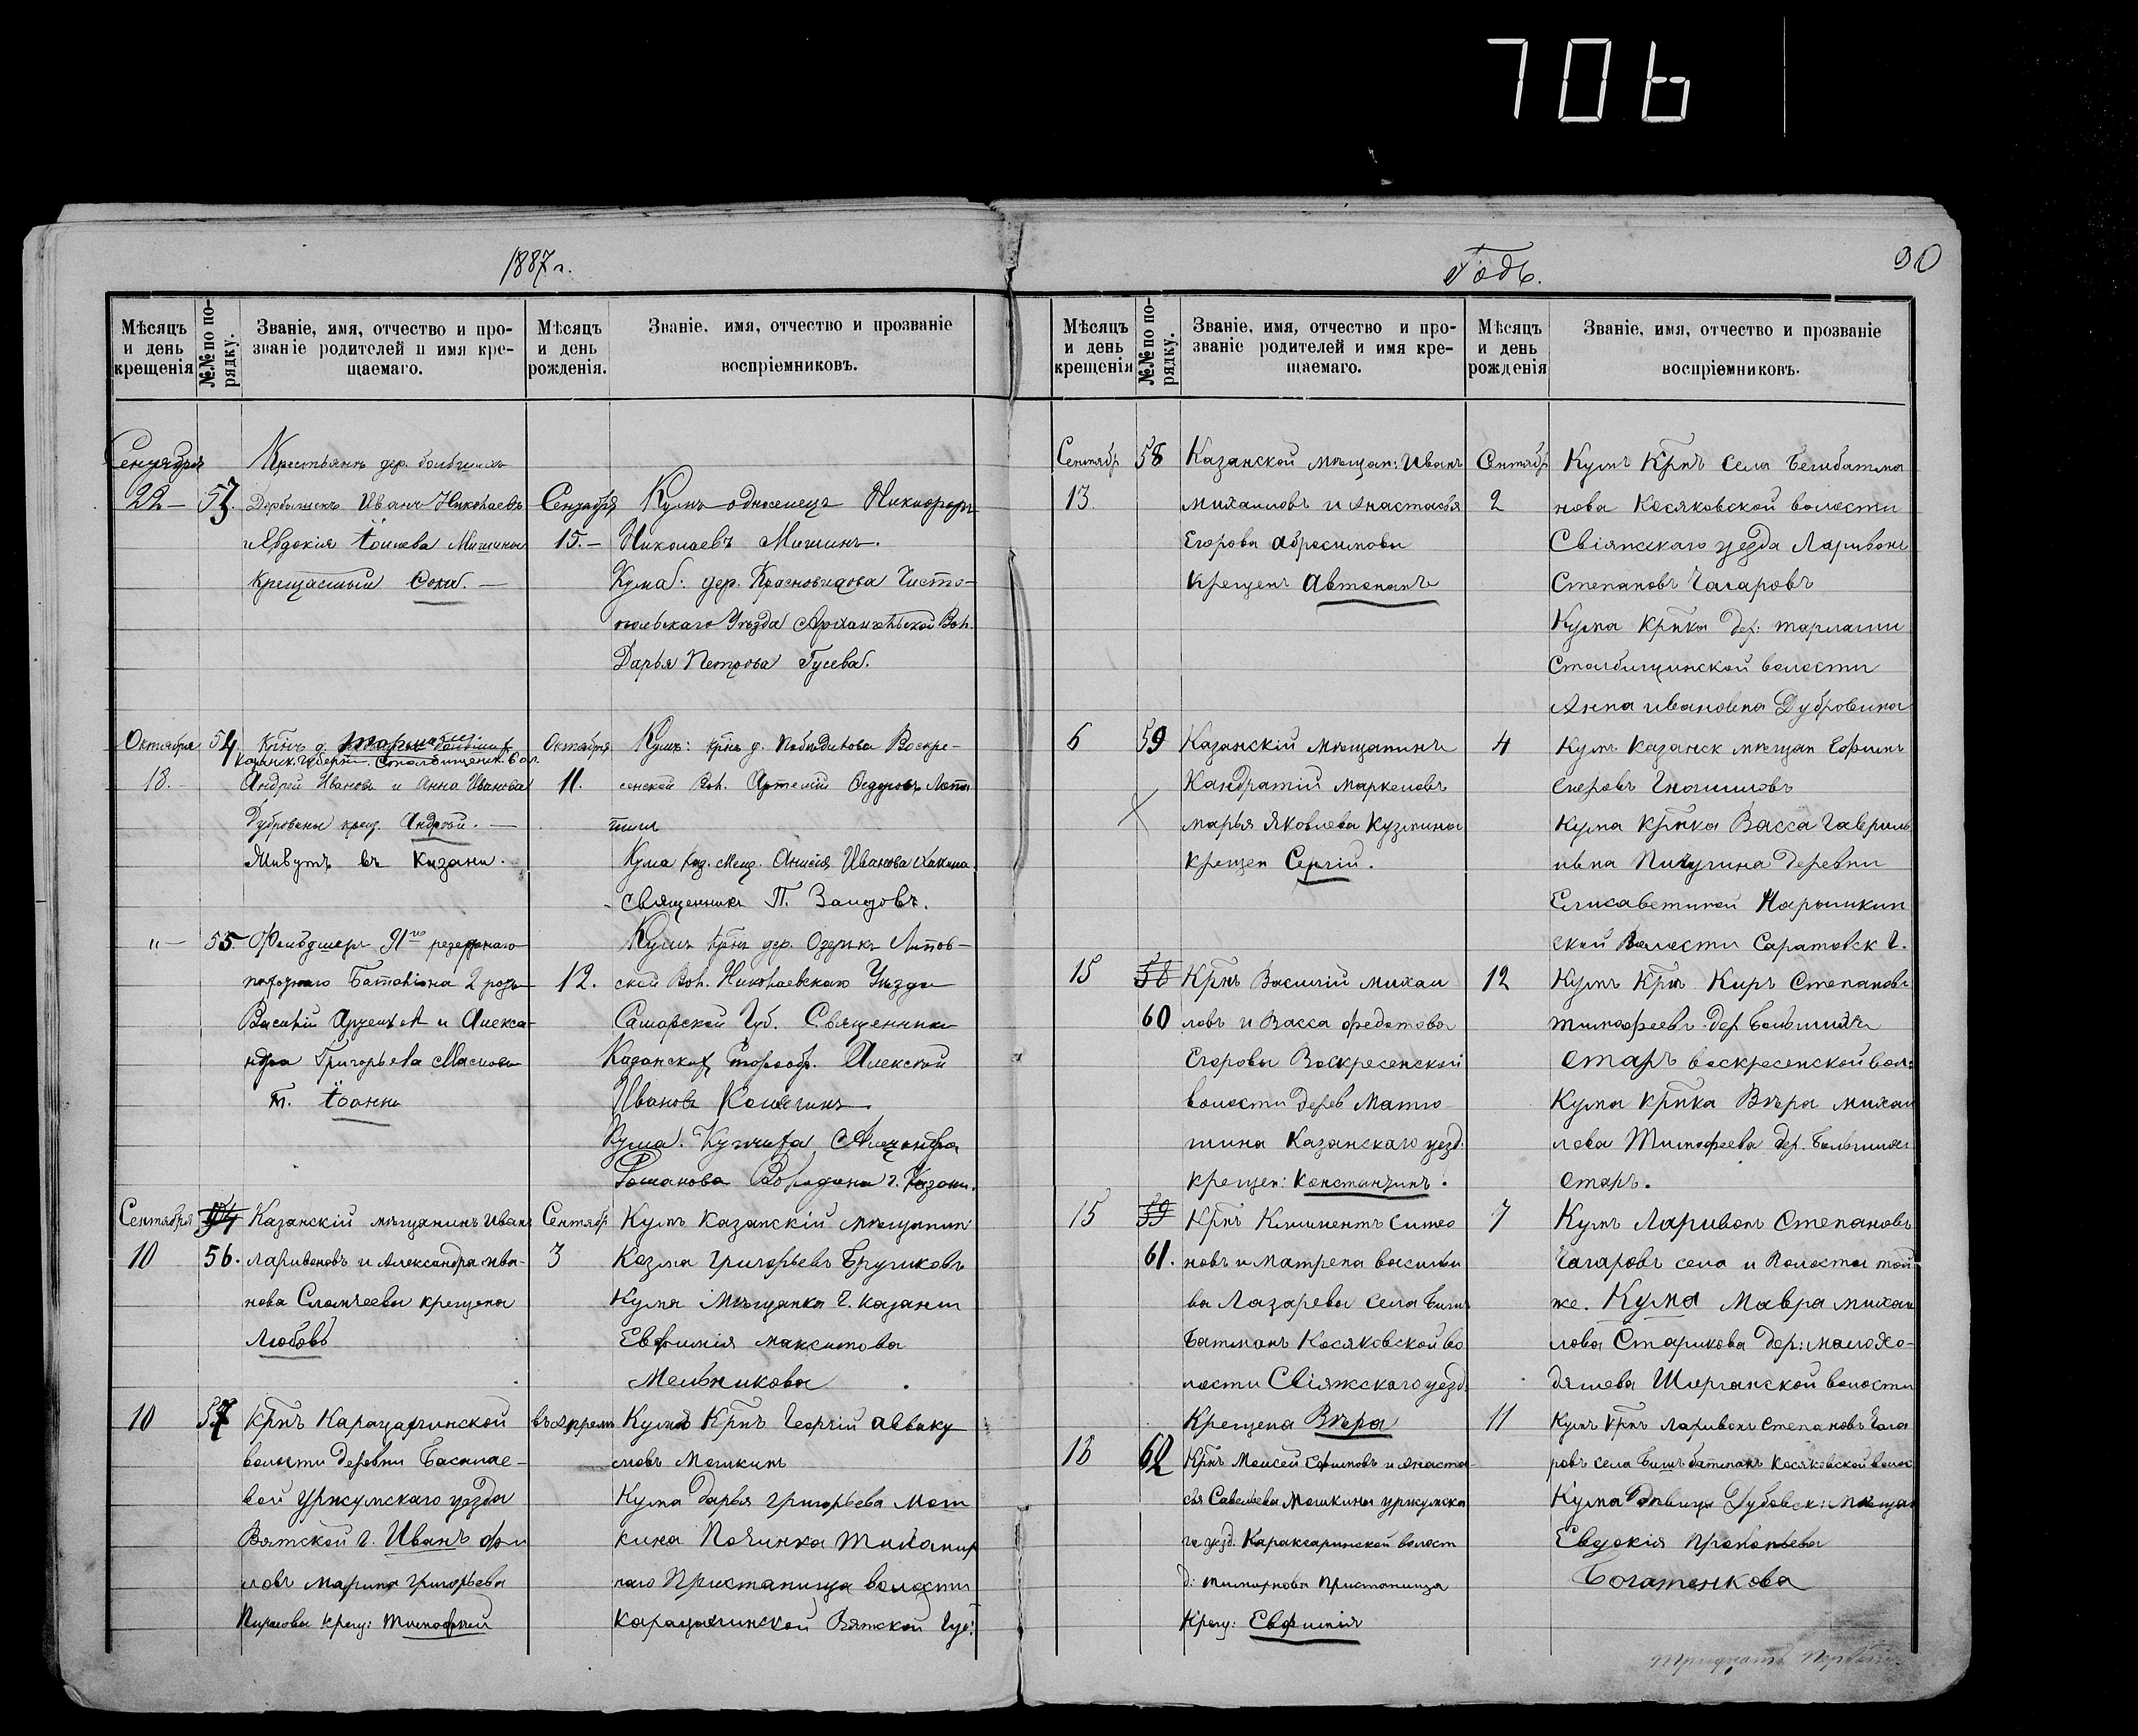 706
1887 г.
Мѣсяцъ и день крещенія
№№ по порядку.
Званіе, имя, отчество и прозваніе родителей и имя крещаемаго.
Мѣсяцъ и день рожденія.
Званіе, имя, отчество и прозваніе воспріемниковъ.
Сентября
22 —
53.
Крестьянъ дер.
Дербышекъ Иванъ Николаевъ
и Евдокія Мишины
Крещаемый
Сентября
15. —
Кумъ односелецъ Никифоръ
Николаевъ Мишинъ.
Кума: дер. Красновидова Чисто-
польскаго Уѣзда Архангельской Вол.
Дарья Петрова Гусева.
Октября
18. —
54.
Крнъ д.
Казанск. Губерніи. Столбищенск. Вол.
Андрей Ивановъ и Анна Иванова
Дубровины крещ. Андрей. —
Живутъ въ Казани.
Октября
11.
Кумъ: крнъ д. Победилова Воскре-
сенской Вол. Артемій Федоровъ
Кума Каз. Мещ. Анисія Иванова
Священникъ П. Заидовъ.
" —
55.
Фельдшеръ резервнаго
Баталіона 2 роты
Василій и Алекса-
ндра Григорьева Маслова
т. Іоаннъ
12.
Кумъ Крнъ дер. Озерки Липов-
ской Вол. Николаевскаго Уѣзда
Самарской Губ. Священникъ
Казанской Алексѣй
Ивановъ Калягинъ
Кума. Купчиха Александра
Романова Бородина г. Казани.
Сентября
10
54
56.
Казанскій мѣщанинъ Иванъ
Ларивоновъ и Александра ива-
нова крещена
Любовь
Сентябр
3
Кумъ Казанскій мѣщанинъ
Козма григорьевъ Бруиковъ
Кума Мѣщанка г. Казани
Евфимія максимова
Мельникова
10
57
Крнъ
волости деревни
вой уржумскаго уезда
Вятской г. Иванъ фи
ловъ марина григорьева
крещ: Тимофей
Кумъ Крнъ Георгій авваку
мовъ Мошкинъ
Кума дарья григорьева мош
кина Починка
наго Пристанища волости
Вятской Губ:
Годъ.
90
Мѣсяцъ и день крещенія
№№ по порядку.
Званіе, имя, отчество и прозваніе родителей и имя крещаемаго.
Мѣсяцъ и день рожденія
Званіе, имя, отчество и прозваніе воспріемниковъ.
Сентябр
13
58
Казанской мѣщан: Иванъ
михаиловъ и Анастасья
Егорова абросимовы
крещенъ Автонамъ
Сентябр
2
Кумъ Крнъ села
нова Косяковской волости
Свіяжскаго уезда Ларивонъ
Степановъ Чагаровъ
Кума крнка дер: тарлаши
Столбищинской волости
Анна ивановна Дубровина
6
59
Казанскій мѣщанинъ
Кандратій маркеловъ
марья Яковлева Кузмины
крещен Сергій.
4
Кумъ казанск мѣщан Ефимъ
Кума крнка Васса гаврил
ивна Пичугина деревни
Елисаветиной Нарышкин
ской Волости Саратовск г.
15
58
60
Крнъ Василій михаи
ловъ и Васса федотова
Егоровы Воскресенской
волости дерев Матю
шина Казанскаго уезд:
крещен: Константинъ.
12
Кумъ Крнъ Киръ Степановъ
тимофеевъ дер Большихъ
старъ воскресенской вол:
Кума крнка Вѣра михаи
лова Тимофеева дер. Большихъ
старъ.
15
59
61.
Крнъ Климентъ симео
новъ и матрена васильи
ва Лазаревы села Биш
Батманъ Косяковской во
лости Свіяжскаго уезд
Крещена Вѣра
7
Кумъ Ларивонъ Степановъ
Чагаровъ села и Волости той
же. Кума Мавра михаи
лова Старикова дер: мало Хо-
дяшева Ширданской волости
18
62
Крнъ Моисей Ефимовъ и Анаста-
сья Савельева Мошкины уржумска
го уезд: волост
д: пристанища
Крещ: Евфимія
11
Кумъ Крнъ Ларивонъ Степановъ Чага
ровъ села Биш батманъ Косяковской волос
Кума девица Дубовск: мѣщан
Евдокія прокопьева
Богатенкова